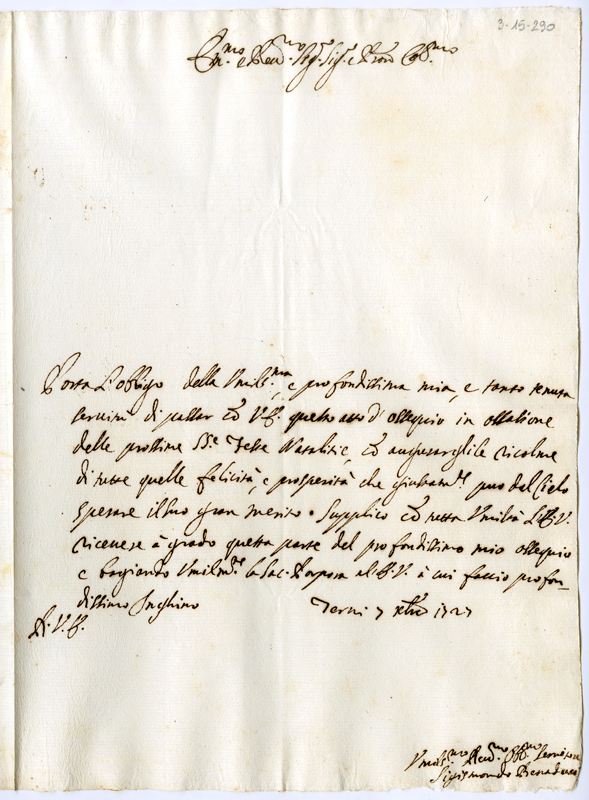 3-15-290
Em.mo e Rev.mo Sig.r Sig.r e Pron Col.mo
Porta l'obbligo della Umilis.ma, e profondissima mia, e tanto tenuta
servitù di passar co V.E. questo atto d'ossequio in occasione
delle prossime SS.e Feste Natalizie, co augurargliele ricolme
di tutte quelle felicità, e prosperità che giustam.te puo del Cielo
sperare il suo gran merito. Supplico co tutta Umiltà l'E.V.
ricevere à grado questa parte del profondissimo mio ossequio
e bagiando Umilm.te la Sac. Porpora all'E.V. à cui faccio profon-
dissimo Inchino Terni 7 xbre 1727
D. V. E.
Umilis.mo Dev.mo Obb.mo Servitore
Sigismondo